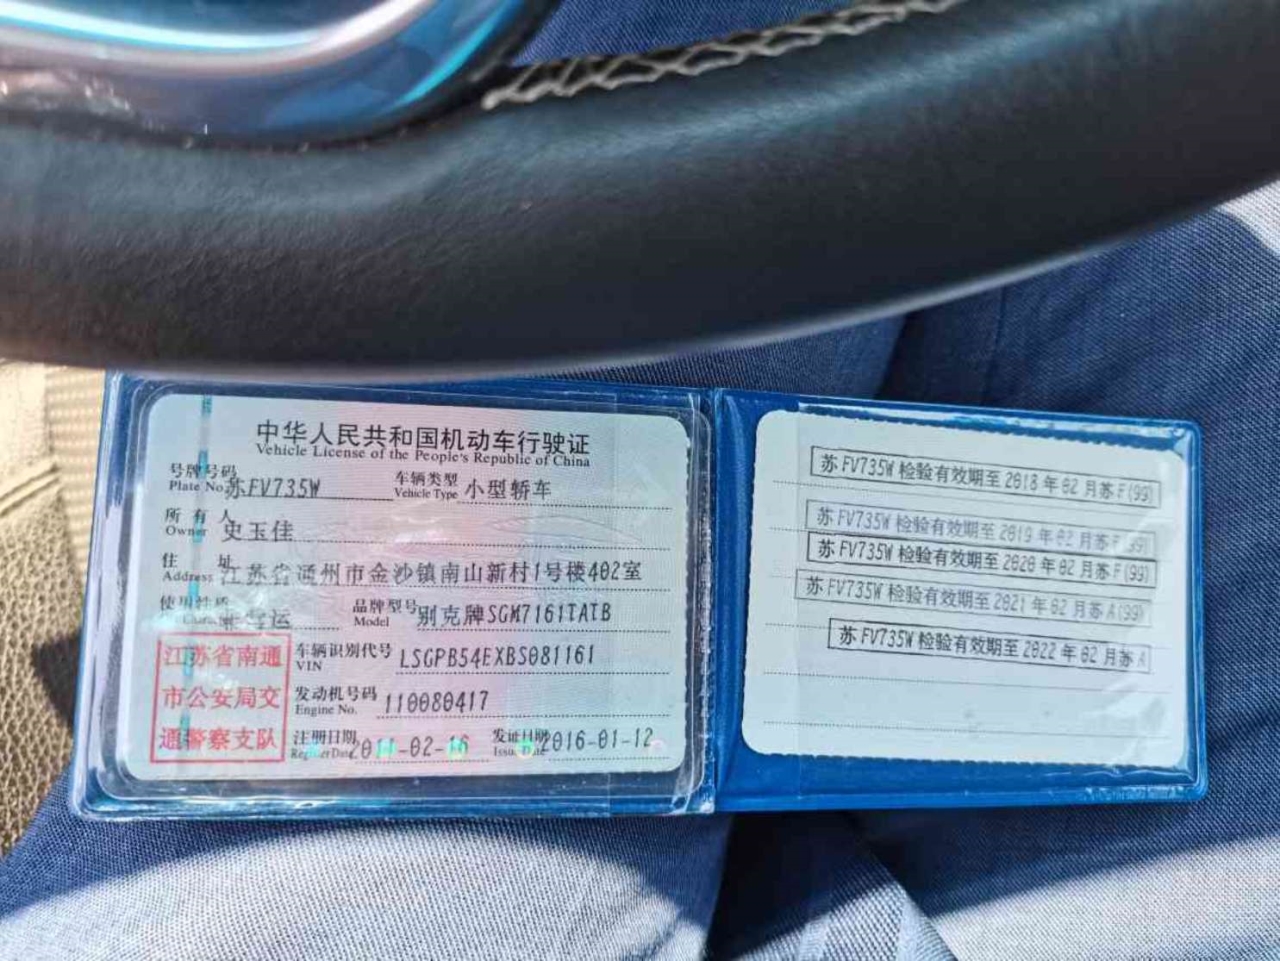 中华人民共和国机动车行驶证
Vehicle License of the People's Republic of China
号牌号码 Plate No. 苏FV735W 车辆类型 Vehicle Type 小型轿车
所有人 Owner 史玉佳
住址 Address 江苏省通州市金沙镇南山新村1号楼402室
使用性质 非营运 品牌型号 Model 别克牌SGM7161TATB
江苏省南通
市公安局交
通警察支队
车辆识别代号 VIN LSGPB54EXBS081161
发动机号码 Engine No. 110080417
注册日期 Register Date 2011-02-16 发证日期 Issue Date 2016-01-12
苏FV735W 检验有效期至2018年02月苏F(99)
苏FV735W 检验有效期至2019年02月苏F(99)
苏FV735W 检验有效期至2020年02月苏F(99)
苏FV735W 检验有效期至2021年02月苏A(99)
苏FV735W 检验有效期至2022年02月苏A